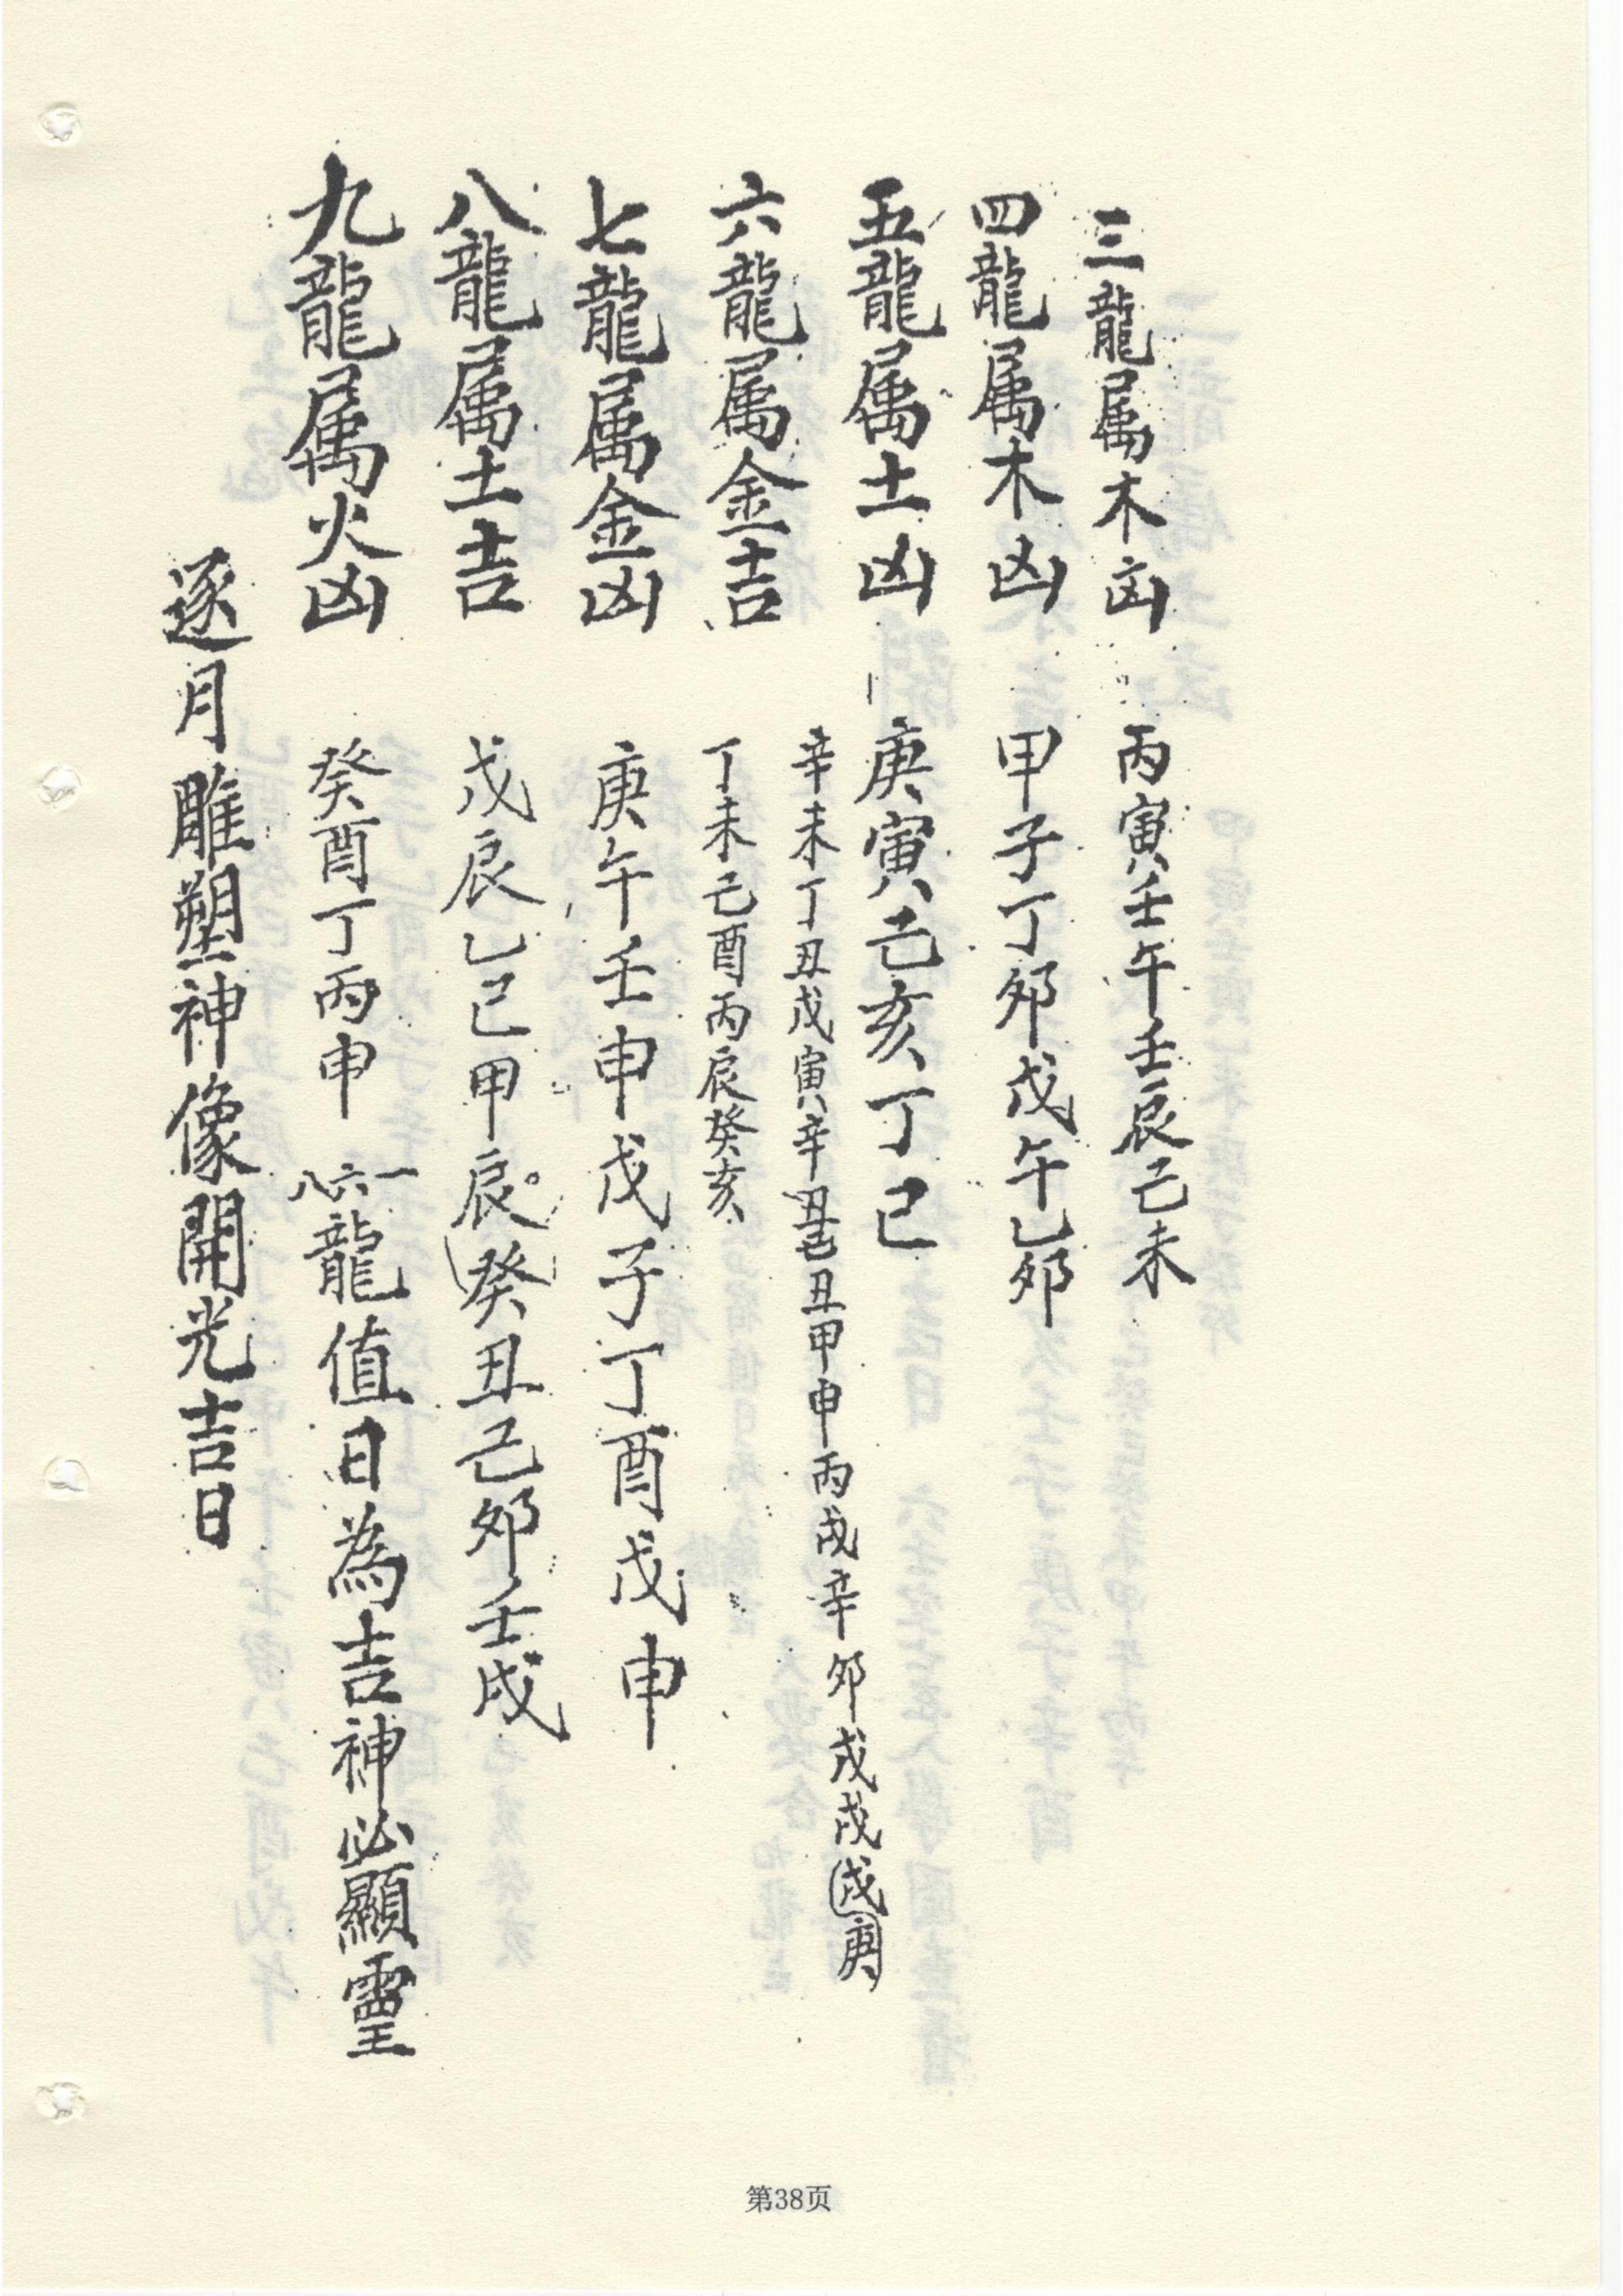 三龍属木凶　丙寅壬午壬辰己未
四龍属木凶　甲子丁卯戊午乙卯
五龍属土凶　庚寅己亥丁己
六龍属金吉　辛未丁丑戊寅辛丑丑甲申丙戌辛卯戊戌戌
丁未己酉丙辰癸亥
七龍属金凶　庚午壬申戊子丁酉戊申
八龍属土吉　戊辰乙己甲辰癸丑己卯壬戌
九龍属火凶　癸酉丁丙申　一六八龍值日為吉神必顯靈
逐月雕塑神像開光吉日
第38页